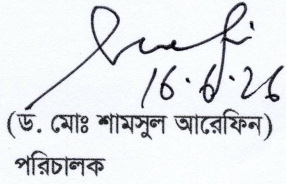 16.6.26
(ড. মোঃ শামসুল আরেফিন)
পরিচালক